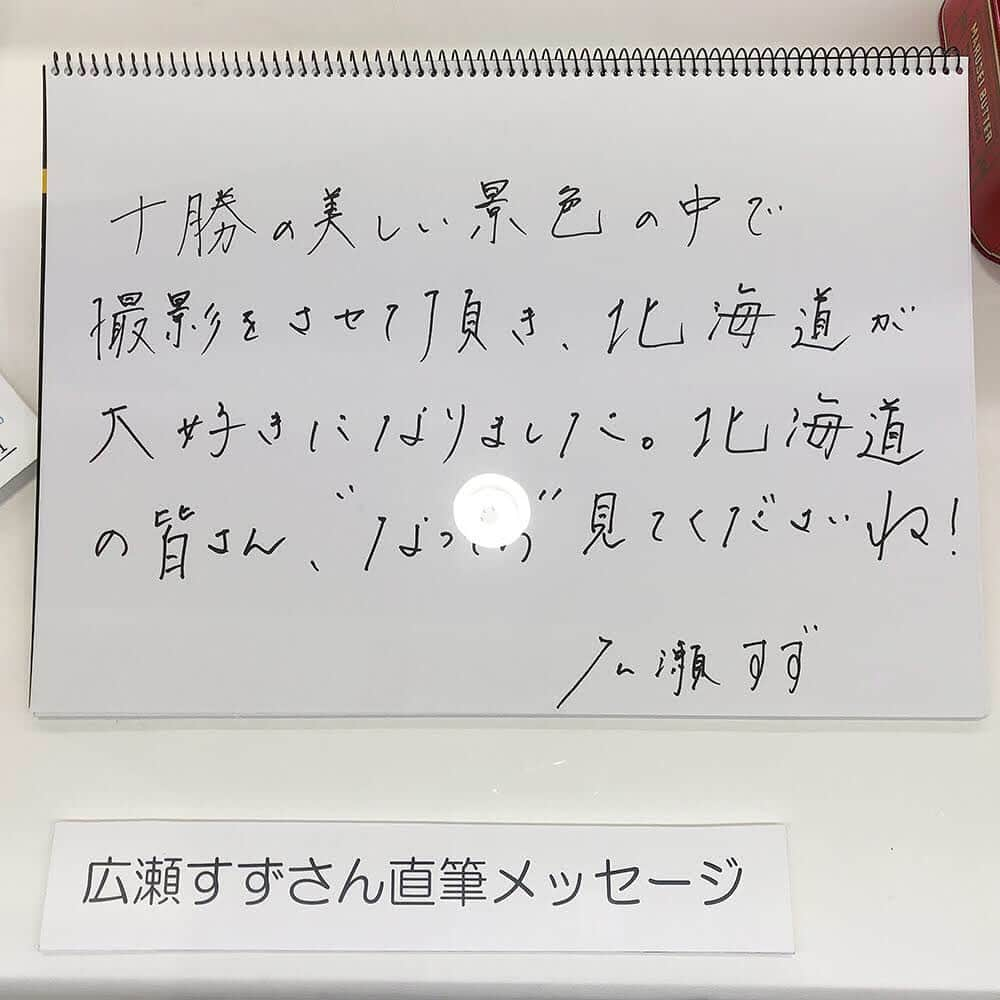 十勝の美しい景色の中で
撮影をさせて頂き、北海道が
大好きになりました。北海道
の皆さん、"なつぞら"見てくださいね!
広瀬すず
広瀬すずさん直筆メッセージ
MARUSEI BUTTER